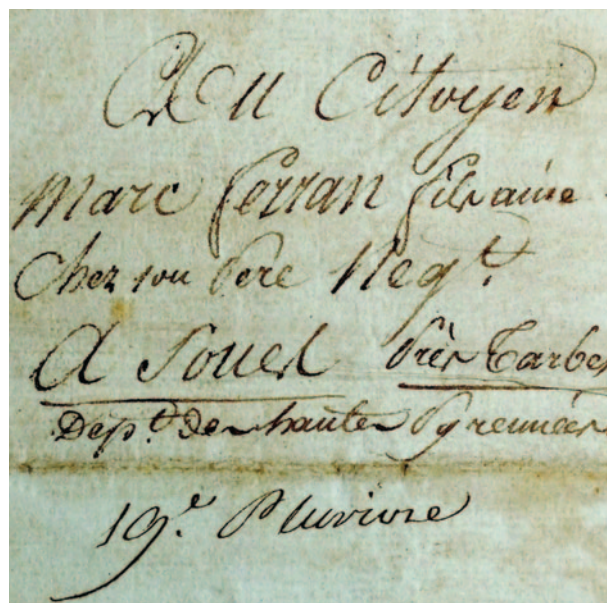 Au Citoyen
Marc Ferran fils ainé
Chez son Pere Negt.
A Soues Près Tarbes
Dept. des hautes Pyrennées
19e. Pluviose